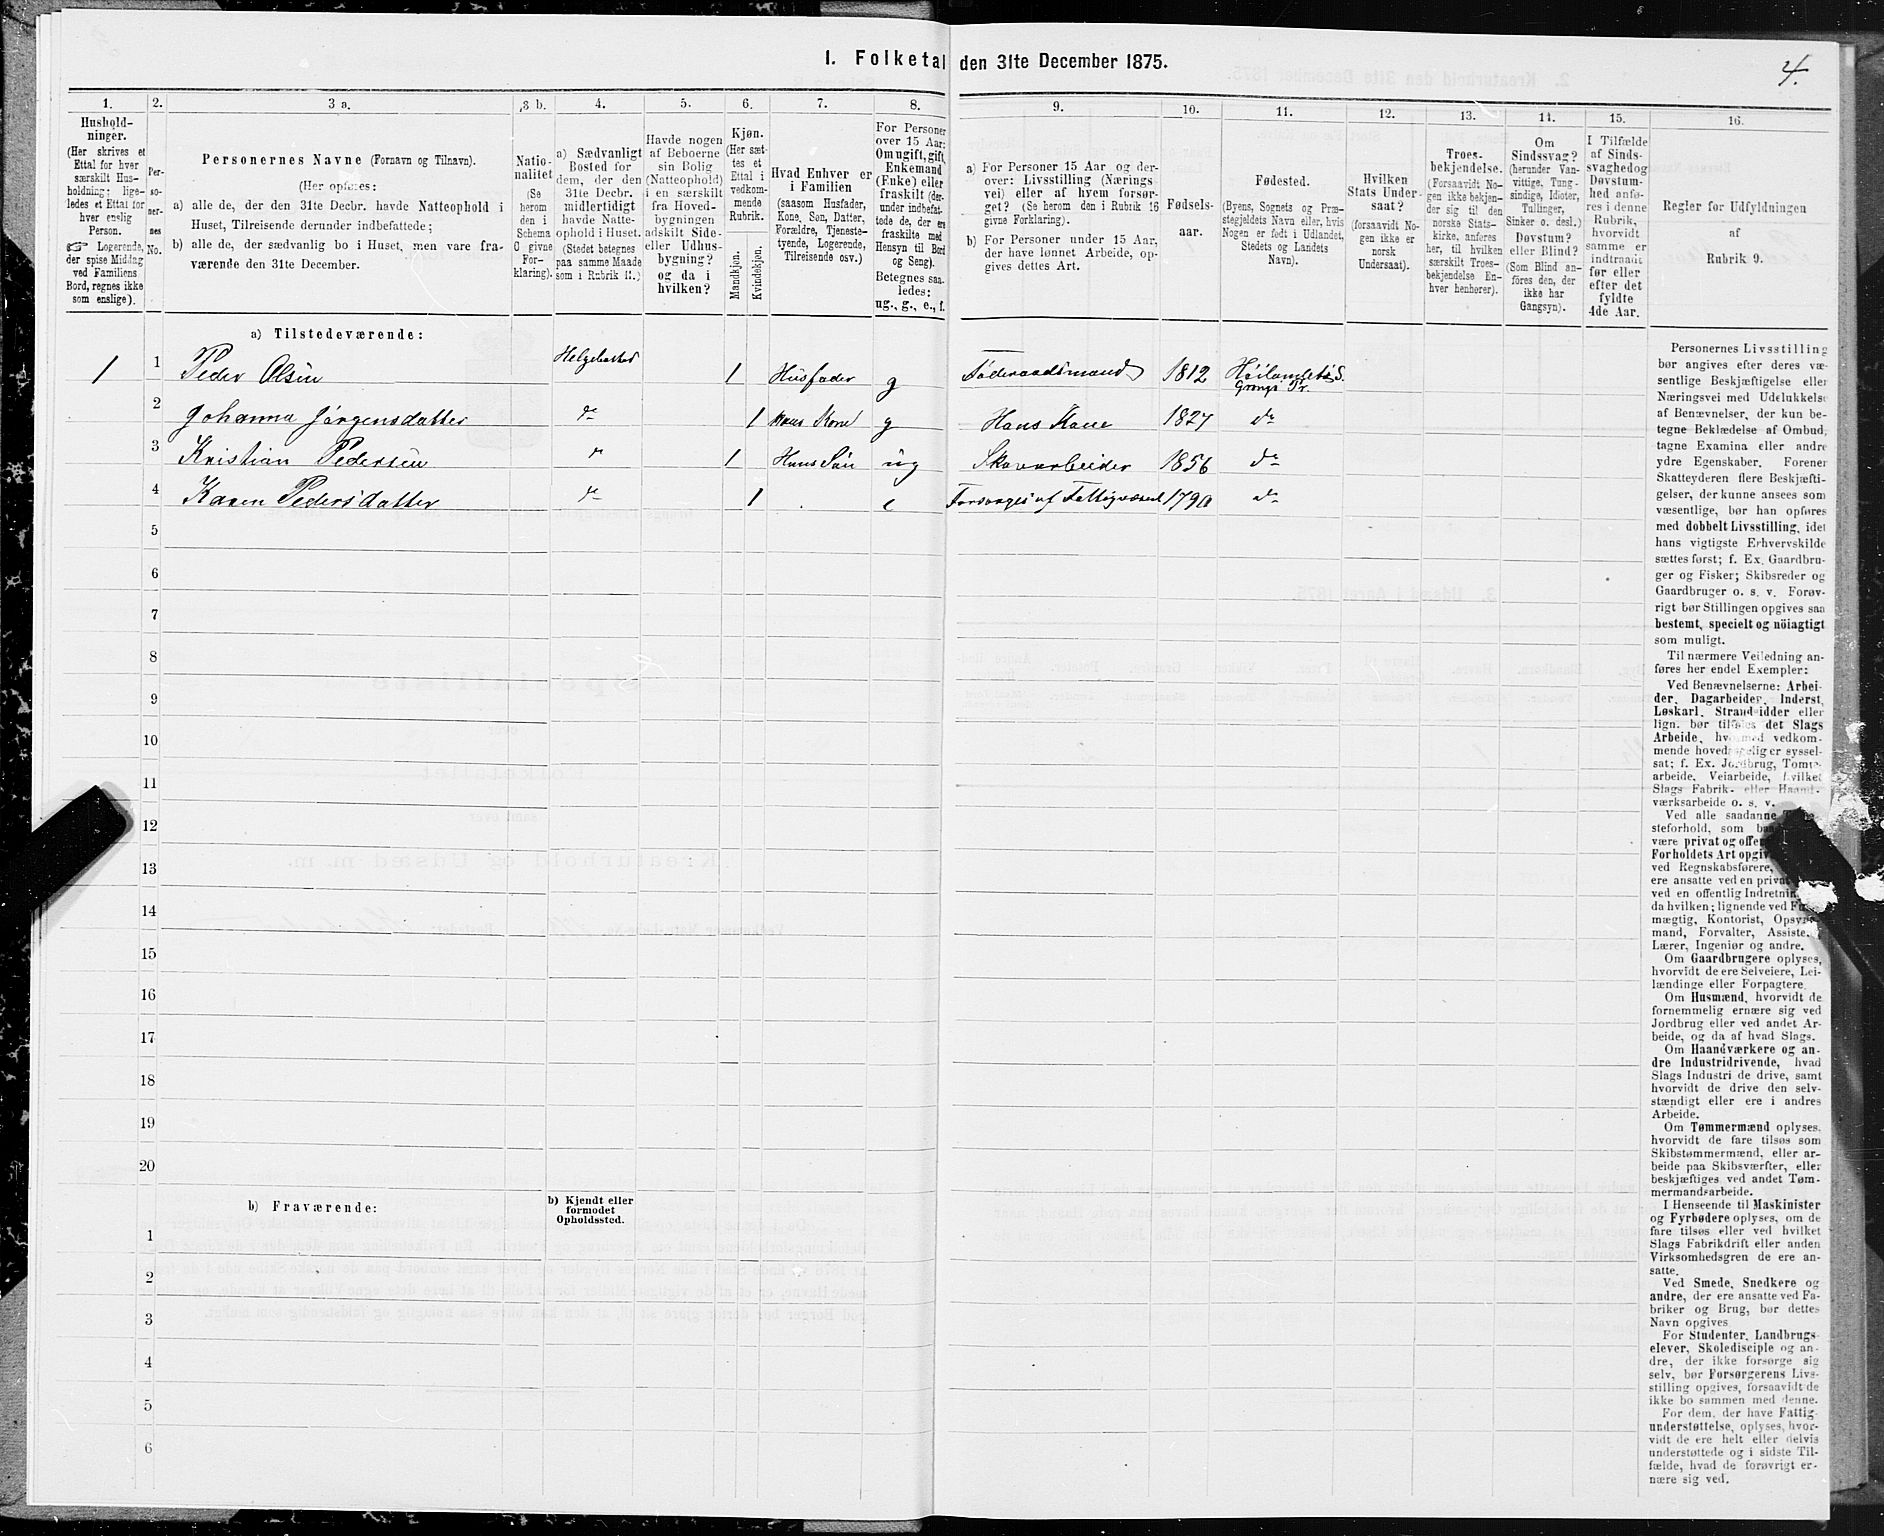 1. Folketal den 31te December 1875.
4.
1.
2.
3 a.
3 b.
4.
5.
6.
7.
8.
9.
10.
11.
12.
13.
14.
15.
16.
Hushold-
ninger.
(Her skrives et
Ettal for hver
særskilt Hus-
holdning; lige-
ledes et Ettal for
hver enslig
Person.
☞ Logerende,
der spise Middag
ved Familiens
Bord, regnes ikke
som enslige).
Per-
so-
ner-
nes
No.
Personernes Navne (Fornavn og Tilnavn).
(Her opføres:
a) alle de, der den 31te Decbr. havde Natteophold i
Huset, Tilreisende derunder indbefattede;
b) alle de, der sædvanlig bo i Huset, men vare fra-
værende den 31te December.
Natio-
nalitet
(Se
herom
den i
Schema
C givne
For-
klaring).
a) Sædvanligt
Bosted for
dem, der den
31te Decbr.
midlertidigt
havde Natte-
ophold i Huset.
(Stedet betegnes
paa samme Maade
som i Rubrik 11.)
Havde nogen
af Beboerne
sin Bolig
(Natteophold)
i en særskilt
fra Hoved-
bygningen
adskilt Side-
eller Udhus-
bygning?
og da i
hvilken?
Kjøn.
(Her sæt-
tes et
Ettal i
vedkom-
mende
Rubrik.
Mandkjøn.
Kvindekjøn.
Hvad Enhver er
i Familien
(saasom Husfader,
Kone, Søn, Datter,
Forældre, Tjeneste-
tyende, Logerende,
Tilreisende osv.)
For Personer
over 15 Aar:
Om ugift, gift,
Enkemand
(Enke) eller
fraskilt (der-
under indbefat-
tede de, der ere
fraskilte med
Hensyn til Bord
og Seng).
Betegnes saa-
ledes:
ug., g., e., f.
a) For Personer 15 Aar og der-
over: Livsstilling (Nærings-
vei) eller af hvem forsør-
get? (Se herom den i Rubrik 16
givne Forklaring).
b) For Personer under 15 Aar,
der have lønnet Arbeide, op-
gives dettes Art.
Fødsels-
aar.
Fødested.
(Byens, Sognets og Præ-
stegjeldets Navn eller, hvis
Nogen er født i Udlandet,
Stedets og Landets
Navn).
Hvilken
Stats Under-
saat?
(forsaavidt No-
gen ikke er
norsk
Undersaat).
Troes-
bekjendelse.
(Forsaavidt No-
gen ikke bekjen-
der sig til den
norske Stats-
kirke, anføres
her, til hvilken
særskilt Troes-
bekjendelse En-
hver henhører).
Om
Sindssvag?
(herunder Van-
vittige, Tung-
sindige, Idioter,
Tullinger,
Sinker o. desl.)
Døvstum?
eller Blind?
(Som Blind an-
føres den, der
ikke har
Gangsyn).
I Tilfælde
af Sinds-
svaghed og
Døvstum-
hed anfø-
res i denne
Rubrik,
hvorvidt
samme er
indtraadt
før eller
efter det
fyldte
4de Aar.
Regler for Udfyldningen
af
Rubrik 9.
a) Tilstedeværende:
1 1 Peder Olsen Helgebostad 1 Husfader g Føderaadsmand 1812 Høilandets S. Grongs Pr.
2 Johanna Jørgensdatter do 1 Hans Kone g Hans Kone 1827 do
3 Kristian Pedersen do 1 Hans Søn ug Skovarbeider 1856 do
4 Karen Pedersdatter do 1 e Forsørges af Fattigvæsenet 1790 do
5
6
7
8
9
10
11
12
13
14
15
16
17
18
19
20
b) Fraværende:
b) Kjendt eller
formodet
Opholdssted.
1
2
3
4
5
6
Personernes Livsstilling
bør angives efter deres væ-
sentlige Beskjæftigelse eller
Næringsvei med Udelukkelse
af Benævnelser, der kun be-
tegne Beklædelse af Ombud,
tagne Examina eller andre
ydre Egenskaber. Forener
Skatteyderen flere Beskjæfti-
gelser, der kunne ansees som
væsentlige, bør han opføres
med dobbelt Livsstilling, idet
hans vigtigste Erhvervskilde
sættes først; f. Ex. Gaardbru-
ger og Fisker; Skibsreder og
Gaardbruger o. s. v. Forøv-
rigt bør Stillingen opgives saa
bestemt, specielt og nöiagtigt
som muligt.
Til nærmere Veiledning an-
føres her endel Exempler:
Ved Benævnelserne: Arbei-
der, Dagarbeider, Inderst,
Løskarl, Strandsidder eller
lign. bør tilføies det Slags
Arbeide, hvormed vedkom-
mende hovedsagelig er syssel-
sat; f. Ex. Jordbrug, Tomte-
arbeide, Veiarbeide, hvilket
Slags Fabrik- eller Haand-
værksarbeide o. s. v.
Ved alle saadanne
steforhold, som
være privat og
Forholdets Art
ved Regnskabsførere,
ere ansatte ved en privat
ved en offentlig Indretning
da hvilken; lignende ved
mægtig, Kontorist, Opsyns-
mand, Forvalter, Assistent,
Lærer, Ingeniør og andre.
Om Gaardbrugere oplyses,
hvorvidt de ere Selveiere, Lei-
lændinge eller Forpagtere.
Om Husmænd, hvorvidt de
fornemmelig ernære sig ved
Jordbrug eller ved andet Ar-
beide, og da af hvad Slags.
Om Haandværkere og an-
dre Industridrivende, hvad
Slags Industri de drive, samt
hvorvidt de drive den selv-
stændigt eller ere i andres
Arbeide.
Om Tømmermænd oplyses,
hvorvidt de fare tilsøs som
Skibstømmermænd, eller ar-
beide paa Skibsværfter, eller
beskjæftiges ved andet Tøm-
mermandsarbeide.
I Henseende til Maskinister
og Fyrbødere oplyses, om de
fare tilsøs eller ved hvilket
Slags Fabrikdrift eller anden
Virksomhedsgren de ere an-
satte.
Ved Smede, Snedkere og
andre, der ere ansatte ved Fa-
briker og Brug, bør dettes
Navn opgives.
For Studenter, Landbrugs-
elever, Skoledisciple og an-
dre, der ikke forsørge sig
selv, bør Forsørgerens Livs-
stilling opgives, forsaavidt de
ikke bo sammen med denne.
For dem, der have Fattig-
understøttelse, oplyses, hvor-
vidt de ere helt eller delvis
understøttede og i sidste Til-
fælde, hvad de forøvrigt er-
nære sig ved.